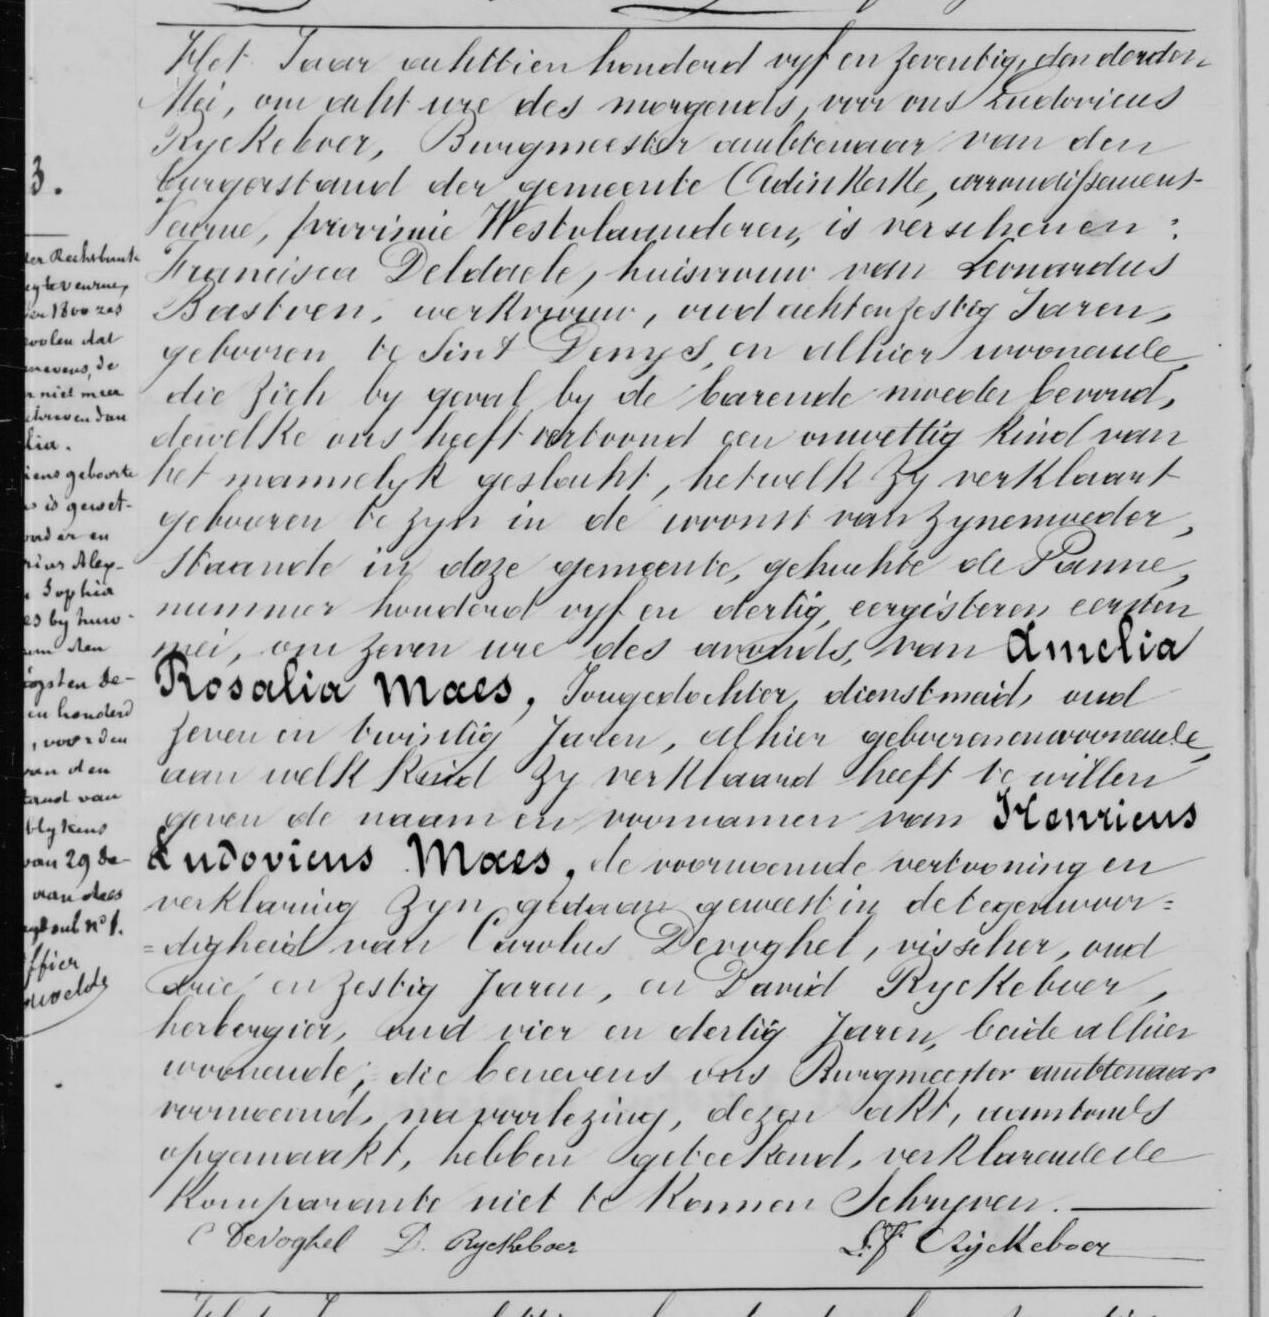 Het Jaar achttien honderd vyf en zeventig, den derden
Mei, om acht ure des morgends, voor ons Ludovicus
Ryckeboer, Burgmeester ambtenaar van den
burgerstand der gemeente Adinkerke, arrondissement
Veurne, provincie Westvlaanderen, is verschenen :
Francisca Deldaele, huisvrouw van Leonardus
Bastven, werkvrouw, oud achtenzestig Jaren,
gebooren te Sint Denys, en alhier woonende,
die zich by geval by de barende moeder bevond,
dewelke ons heeft vertoond een onwettig kind van
het mannelyk geslacht, hetwelk zy verklaart
gebooren te zyn in de woonst van zynemoeder,
staande in deze gemeente, gehuchte de Panne,
nummer honderd vyf en dertig, eergisteren eersten
mei, om zeven ure des avonds, van Amelia
Rosalia Maes, Jongedochter, dienstmeid, oud
zeven en twintig Jaren, alhier geboorenenwoonende,
aan welk kind zy verklaard heeft te willen
geven de naam en voornamen van Henricus
Ludovicus Maes, de voornoemde vertooning en
verklaring zyn gedaan geweest in de tegenwoor=
=digheid van Carolus Devoghel, visscher, oud
drie en zestig Jaren, en David Ryckeboer,
herbergier, oud vier en dertig Jaren, beide alhier
woonende, die benevens ons Burgmeester ambtenaar
voornoemd, na voorlezing, dezen akt, aanstonds
opgemaakt, hebben geteekend, verklarende de
komparante niet te konnen Schryven.
C Devoghel D. Ryckeboer L.F. Ryckeboer
3.
der Rechtbank
te veurne,
1800 zes
dat
de
niet meer
dan
lia.
geboorte
is gewet-
en
Alex-
Sophia
by huw-
den
de-
honderd
, voor den
van den
van
blykens
van 29 de-
van deze
sub n° 1.
ffier